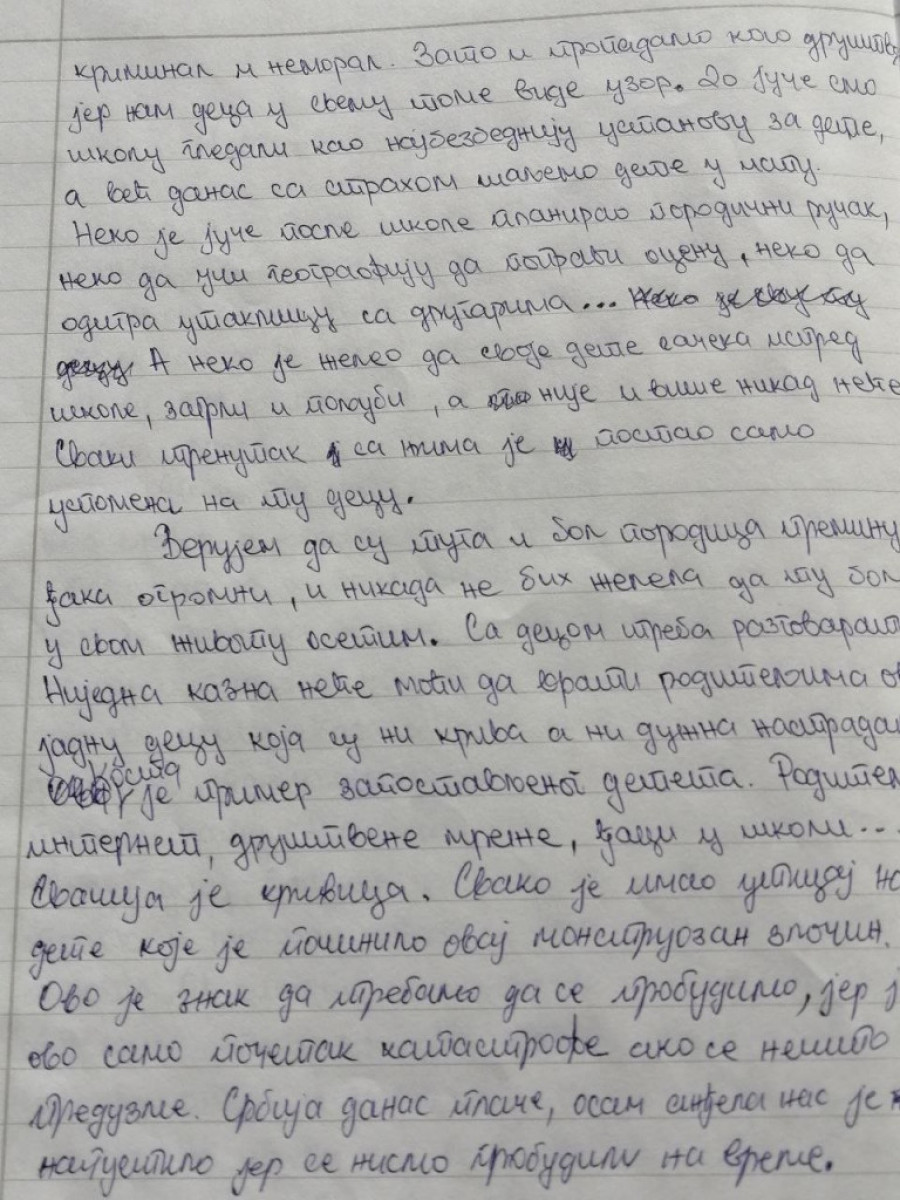 криминал и неморал. Зато и пропадамо као друштво
јер нам деца у свему томе виде узор. До јуче смо
школу гледали као најбезбеднију установу за дете,
а већ данас са страхом шаљемо дете у исту.
Неко је јуче после школе планирао породични ручак,
неко да учи географију да поправи оцену, неко да
одигра утакмицу са другарима...
А неко је желео да своје дете сачека испред
школе, загрли и пољуби, а није и више никад неће
Сваки тренутак са њима је постао само
успомена на ту децу.
Верујем да су туга и бол породица премину
ђака огромни, и никада не бих желела да ту бол
у свом животу осетим. Са децом треба разговарат
Ниједна казна неће моћи да врати родитељима ов
јадну децу која су ни крива а ни дужна настрадал
Коста
је пример запостављеног детета. Родитељ
интернет, друштвене мреже, ђаци у школи...
Свачија је кривица. Свако је имао утицај на
дете које је починило овај монструозан злочин.
Ово је знак да требамо да се пробудимо, јер ј
ово само почетак катастрофе ако се нешто
предузме. Србија данас плаче, осам анђела нас је
напустило јер се нисмо пробудили на време.